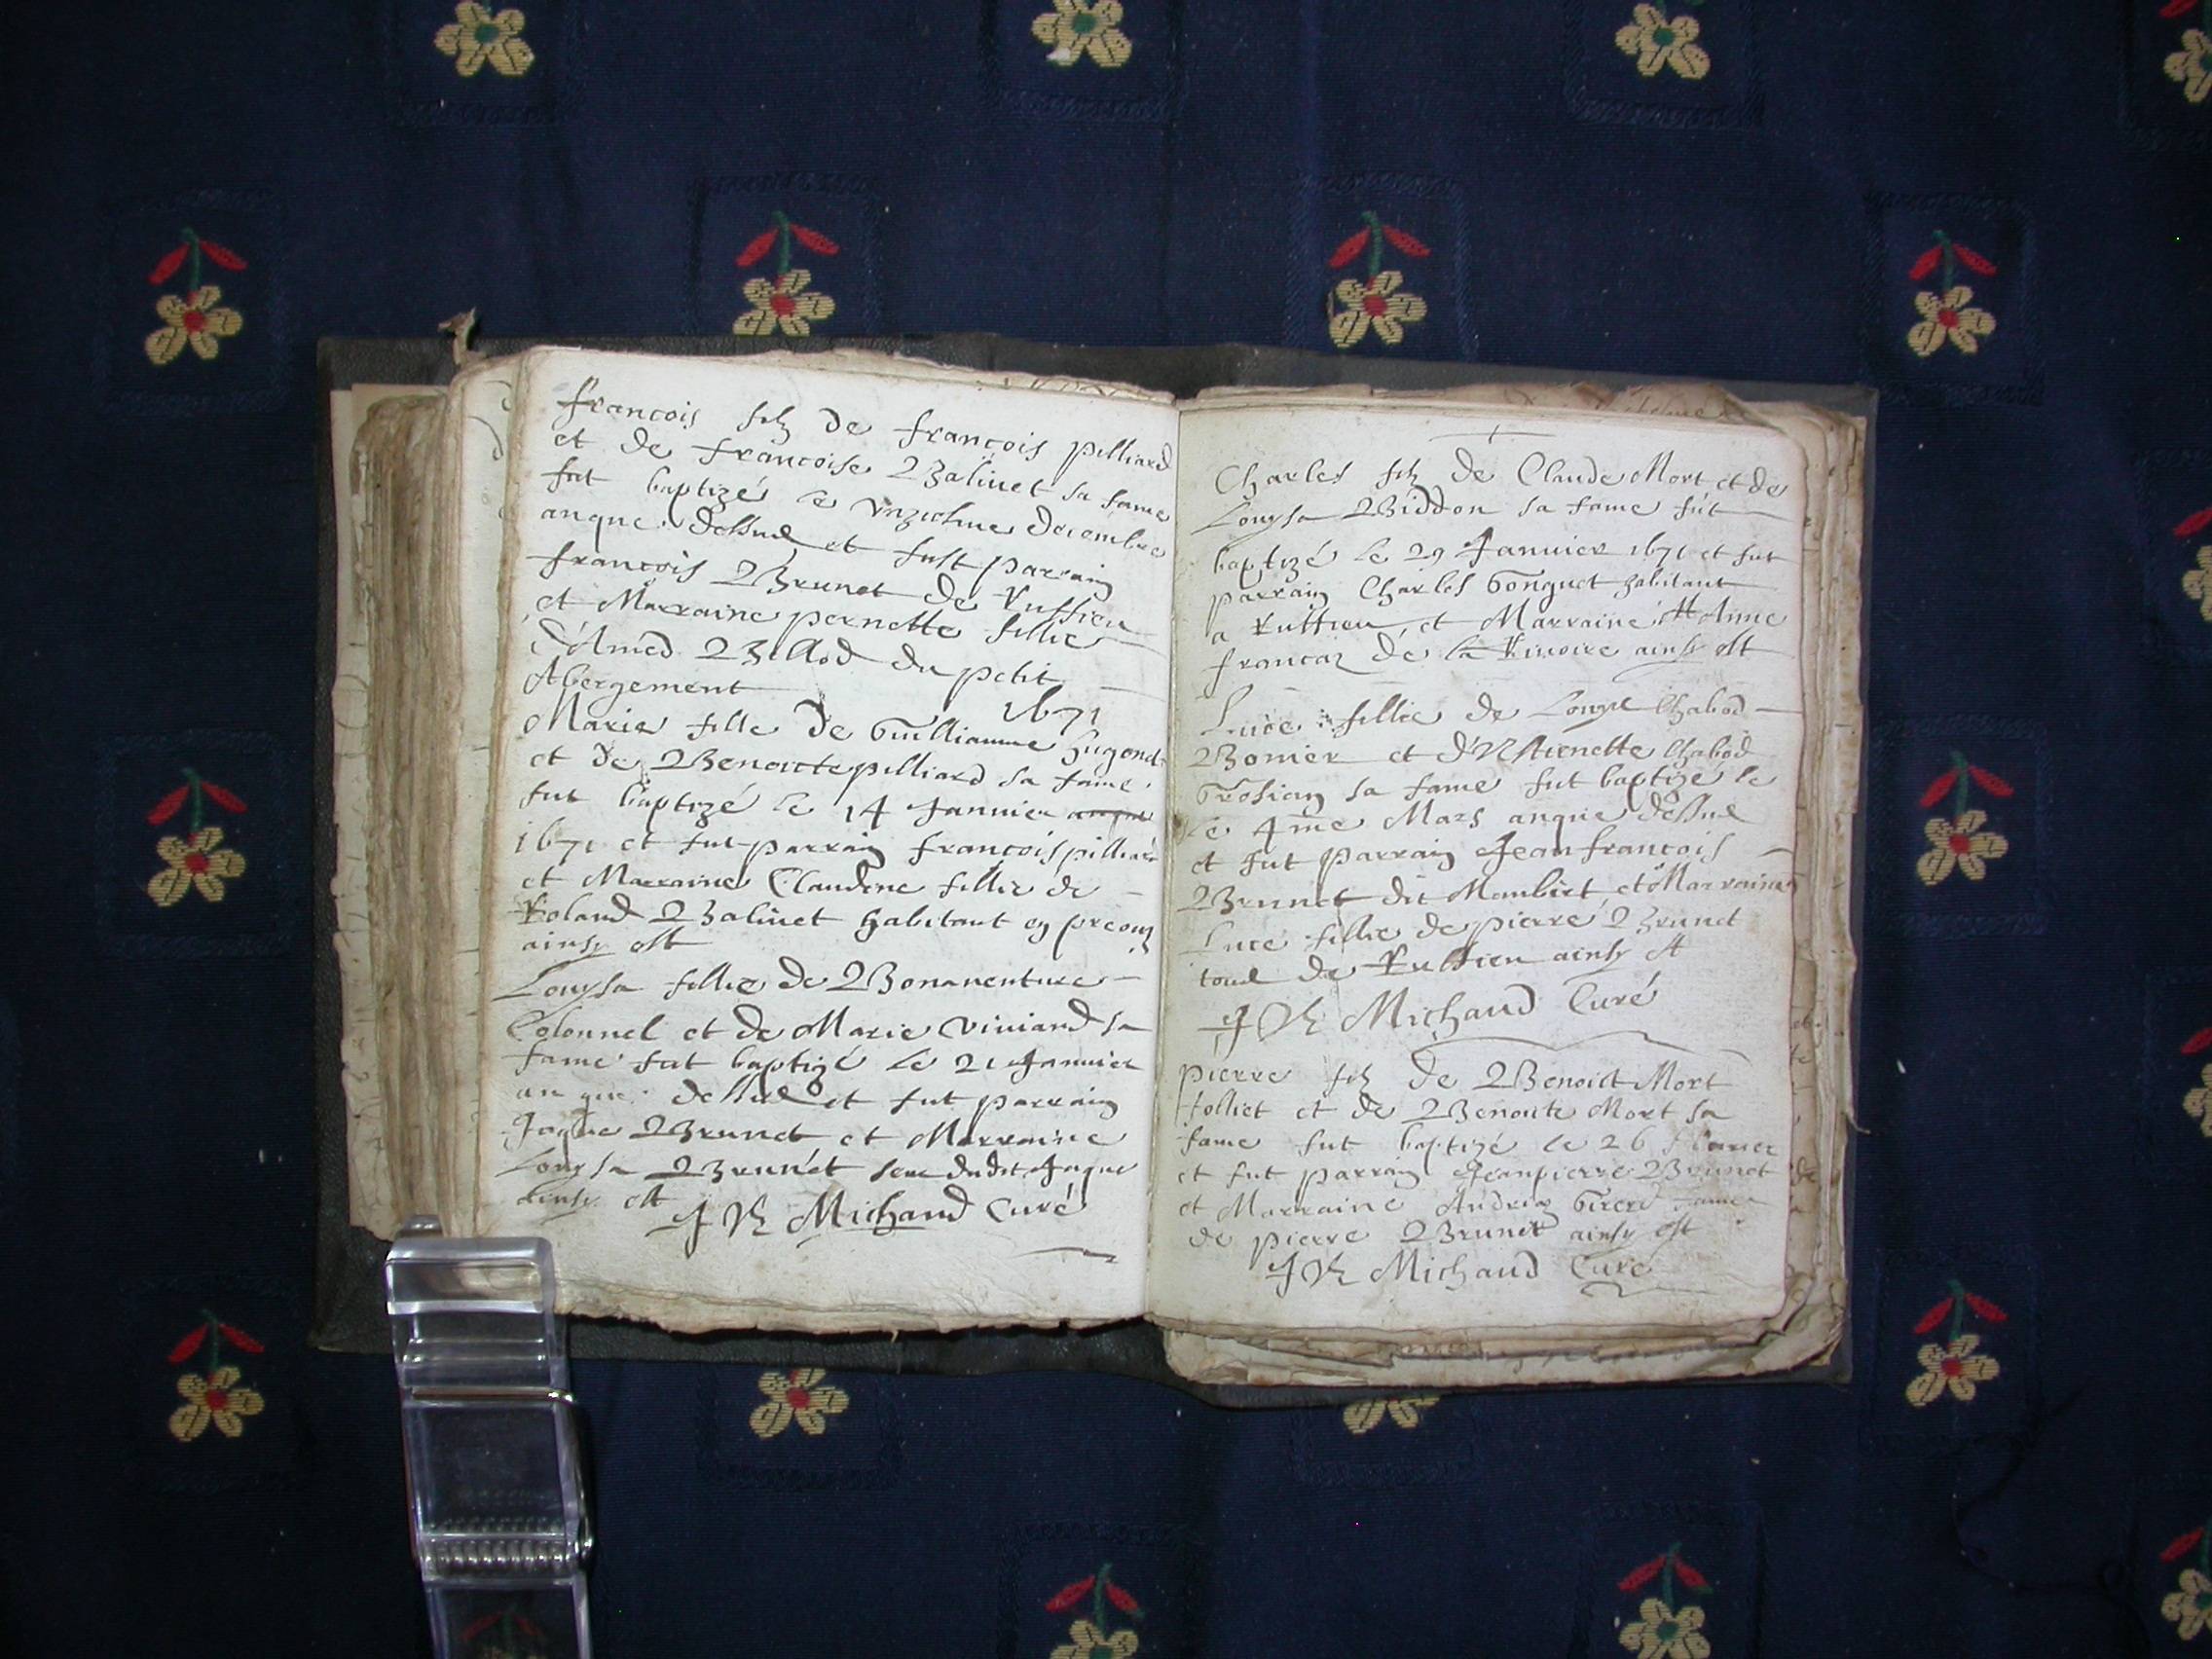 francois filz de francois pilliard
et de francoise Balinet sa fame
fut baptizé le unziesme decembre
anque dessus et fust parrain
francois Brunet de Ruffieu
et Marraine pernette fillie
d'Amed Billod du petit
Abergement
1671
Marie fille de Guilliaume hugond
et de Benoicte pilliard sa fame
fut baptizé le 14 Januier anque
1671 et fut parrain francois pilliard
et Marraine Claudine fillie de
Roland Balinet habitant en
ainsy est
Louysa fillie de Bonauenture
Colonnel et de Marie viuiand sa
fame fut baptizé le 21 Januier
an que dessus et fut parrain
Jaque Brunet et Marraine
Louysa Brunet seur dudit Jaque
ainsy est
Michaud Curé
Charles filz de Claude Mort et de
Louysa Biddon sa fame fut
baptizé le 29 Januier 1671 et fut
parrain Charles Gonguet habitant
a Ruffieu et Marraine Anne
francoz de la ainsy est
Luce fillie de Louys Chabod
Bonier et d'Estienette Chabod
Grosian sa fame fut baptizé le
le 4me Mars anque dessus
et fut parrain Jean francois
Brunet dit Mambiet et Marraine
Luce fillie de pierre Brunet
tous de Ruffieu ainsy est
Michaud Curé
pierre filz de Benoict Mort
Jolliet et de Benoite Mort sa
fame fut baptizé le 26
et fut parrain Jeanpierre Brunet
et Marraine Andrea Girerd fame
de pierre Brunet ainsy est
Michaud Curé